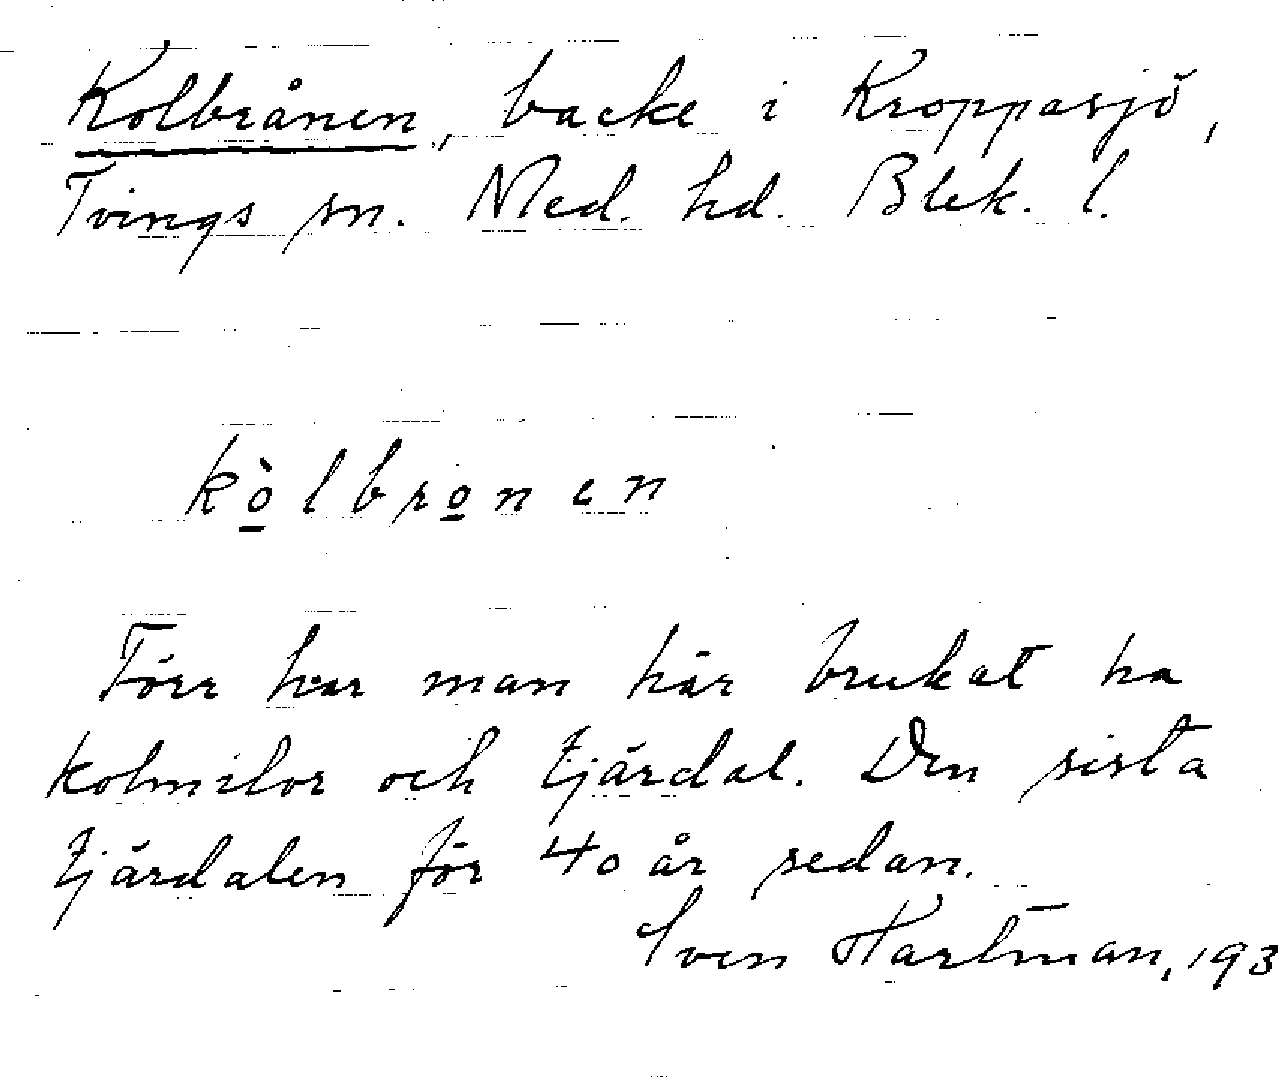 Kolbrånen, backe i Kroppasjö,
Tvings sn. Med. hd. Blek. l.
kò̠lbro̠nen
Förr har man här brukat ha
kolmilor och tjärdal. Den sista
tjärdalen för 40 år sedan.
Sven Hartman, 193